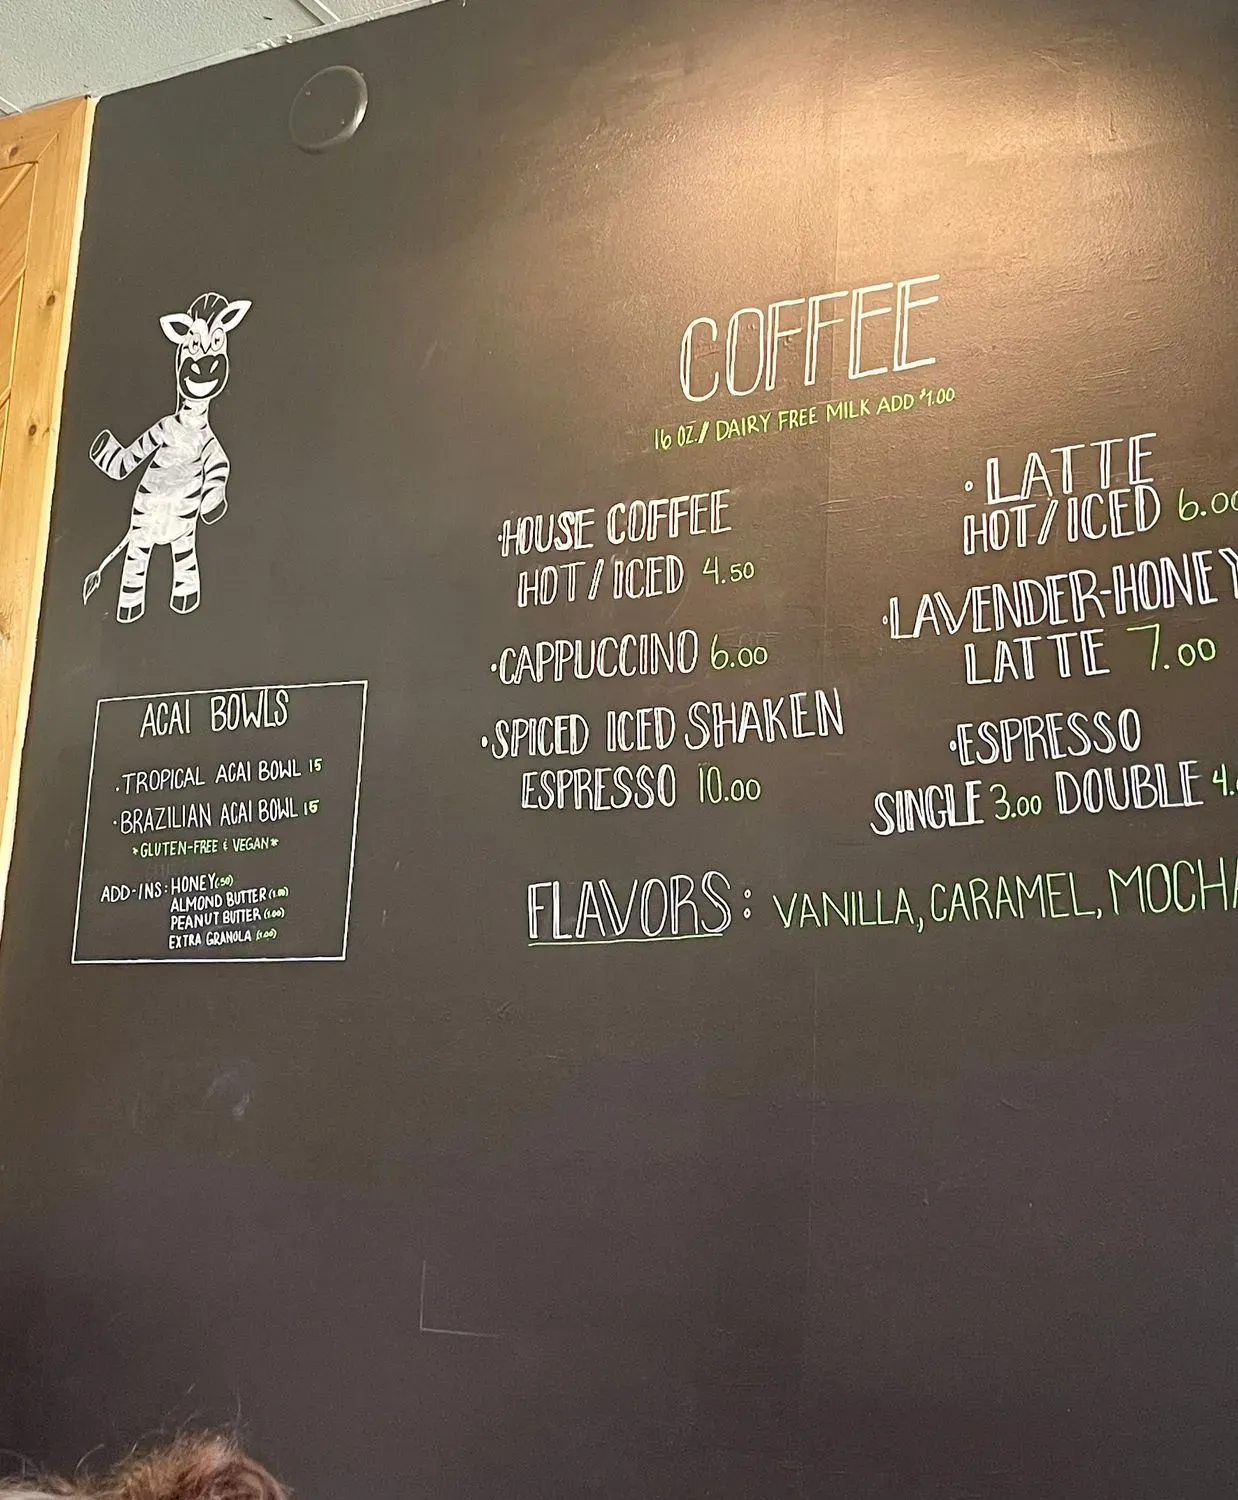 COFFEE
16 OZ. / DAIRY FREE MILK ADD $1.00
· HOUSE COFFEE
HOT / ICED 4.50
· CAPPUCCINO 6.00
· SPICED ICED SHAKEN
ESPRESSO 10.00
· LATTE
HOT / ICED 6.00
· LAVENDER-HONEY
LATTE 7.00
· ESPRESSO
SINGLE 3.00 DOUBLE 4.
FLAVORS: VANILLA, CARAMEL, MOCHA
ACAI BOWLS
· TROPICAL ACAI BOWL 15
· BRAZILIAN ACAI BOWL 15
*GLUTEN-FREE & VEGAN*
ADD-INS: HONEY (.50)
ALMOND BUTTER (1.00)
PEANUT BUTTER (1.00)
EXTRA GRANOLA (1.00)